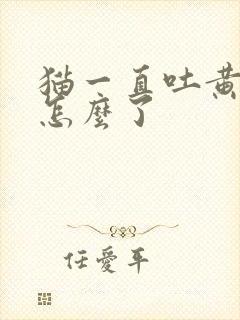 猫一直吐黄
怎麼了
任愛平